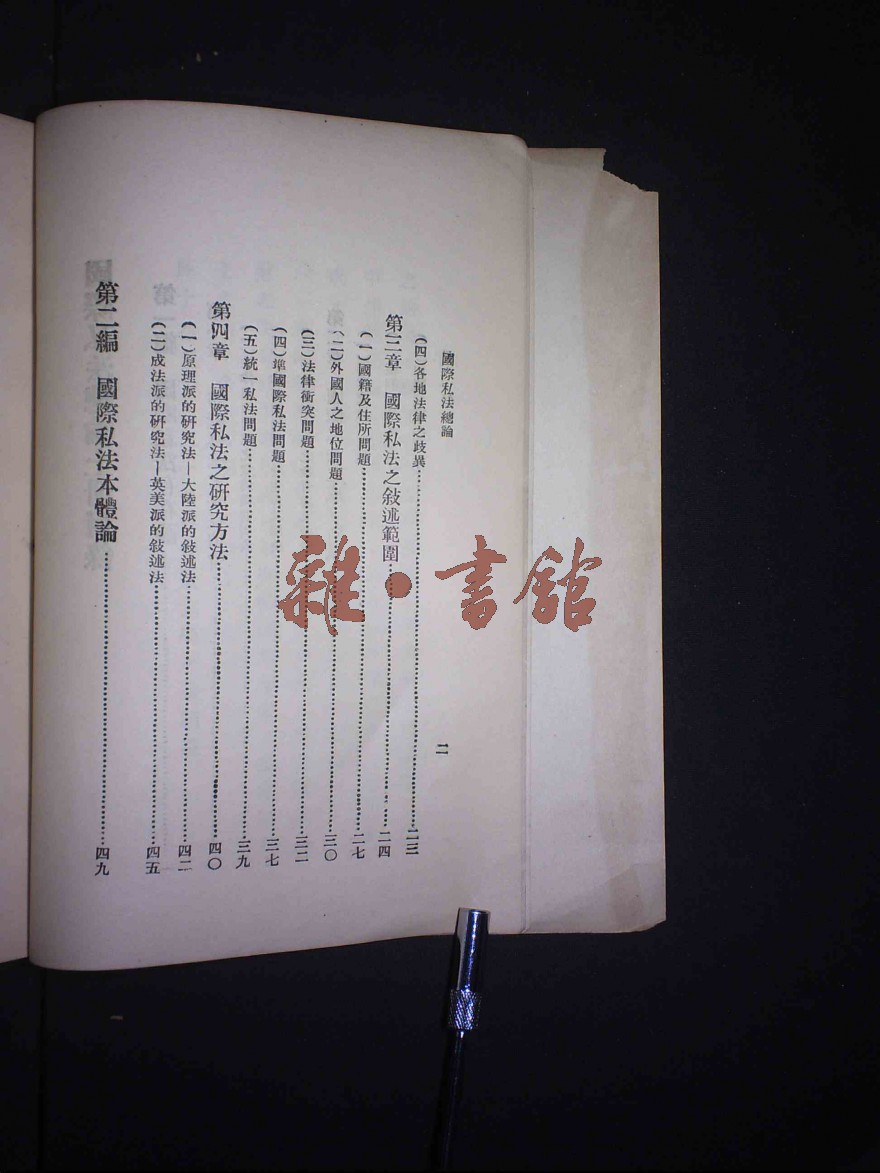 國際私法總論
二
(四)各地法律之歧異……二三
第三章 國際私法之敍述範圍……二四
(一)國籍及住所問題……二七
(二)外國人之地位問題……三〇
(三)法律衝突問題……三二
(四)準國際私法問題……三七
(五)統一私法問題……三九
第四章 國際私法之研究方法……四〇
(一)原理派的研究法—大陸派的敍述法……四二
(二)成法派的研究法—英美派的敍述法……四五
第二編 國際私法本體論……四九
雜·書館